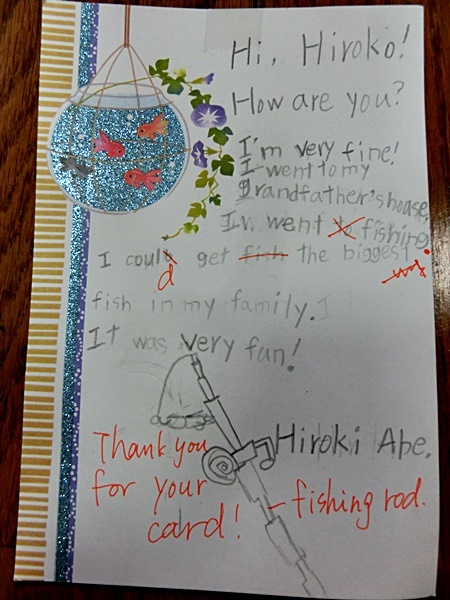 Hi, Hiroko!
How are you?
I'm very fine!
I went to my
grandfather's house.
I went to fishing.
I could get fish the biggest
d
fish in my family.
It was very fun!
Hiroki Abe.
Thank you
for your
card!
fishing rod.